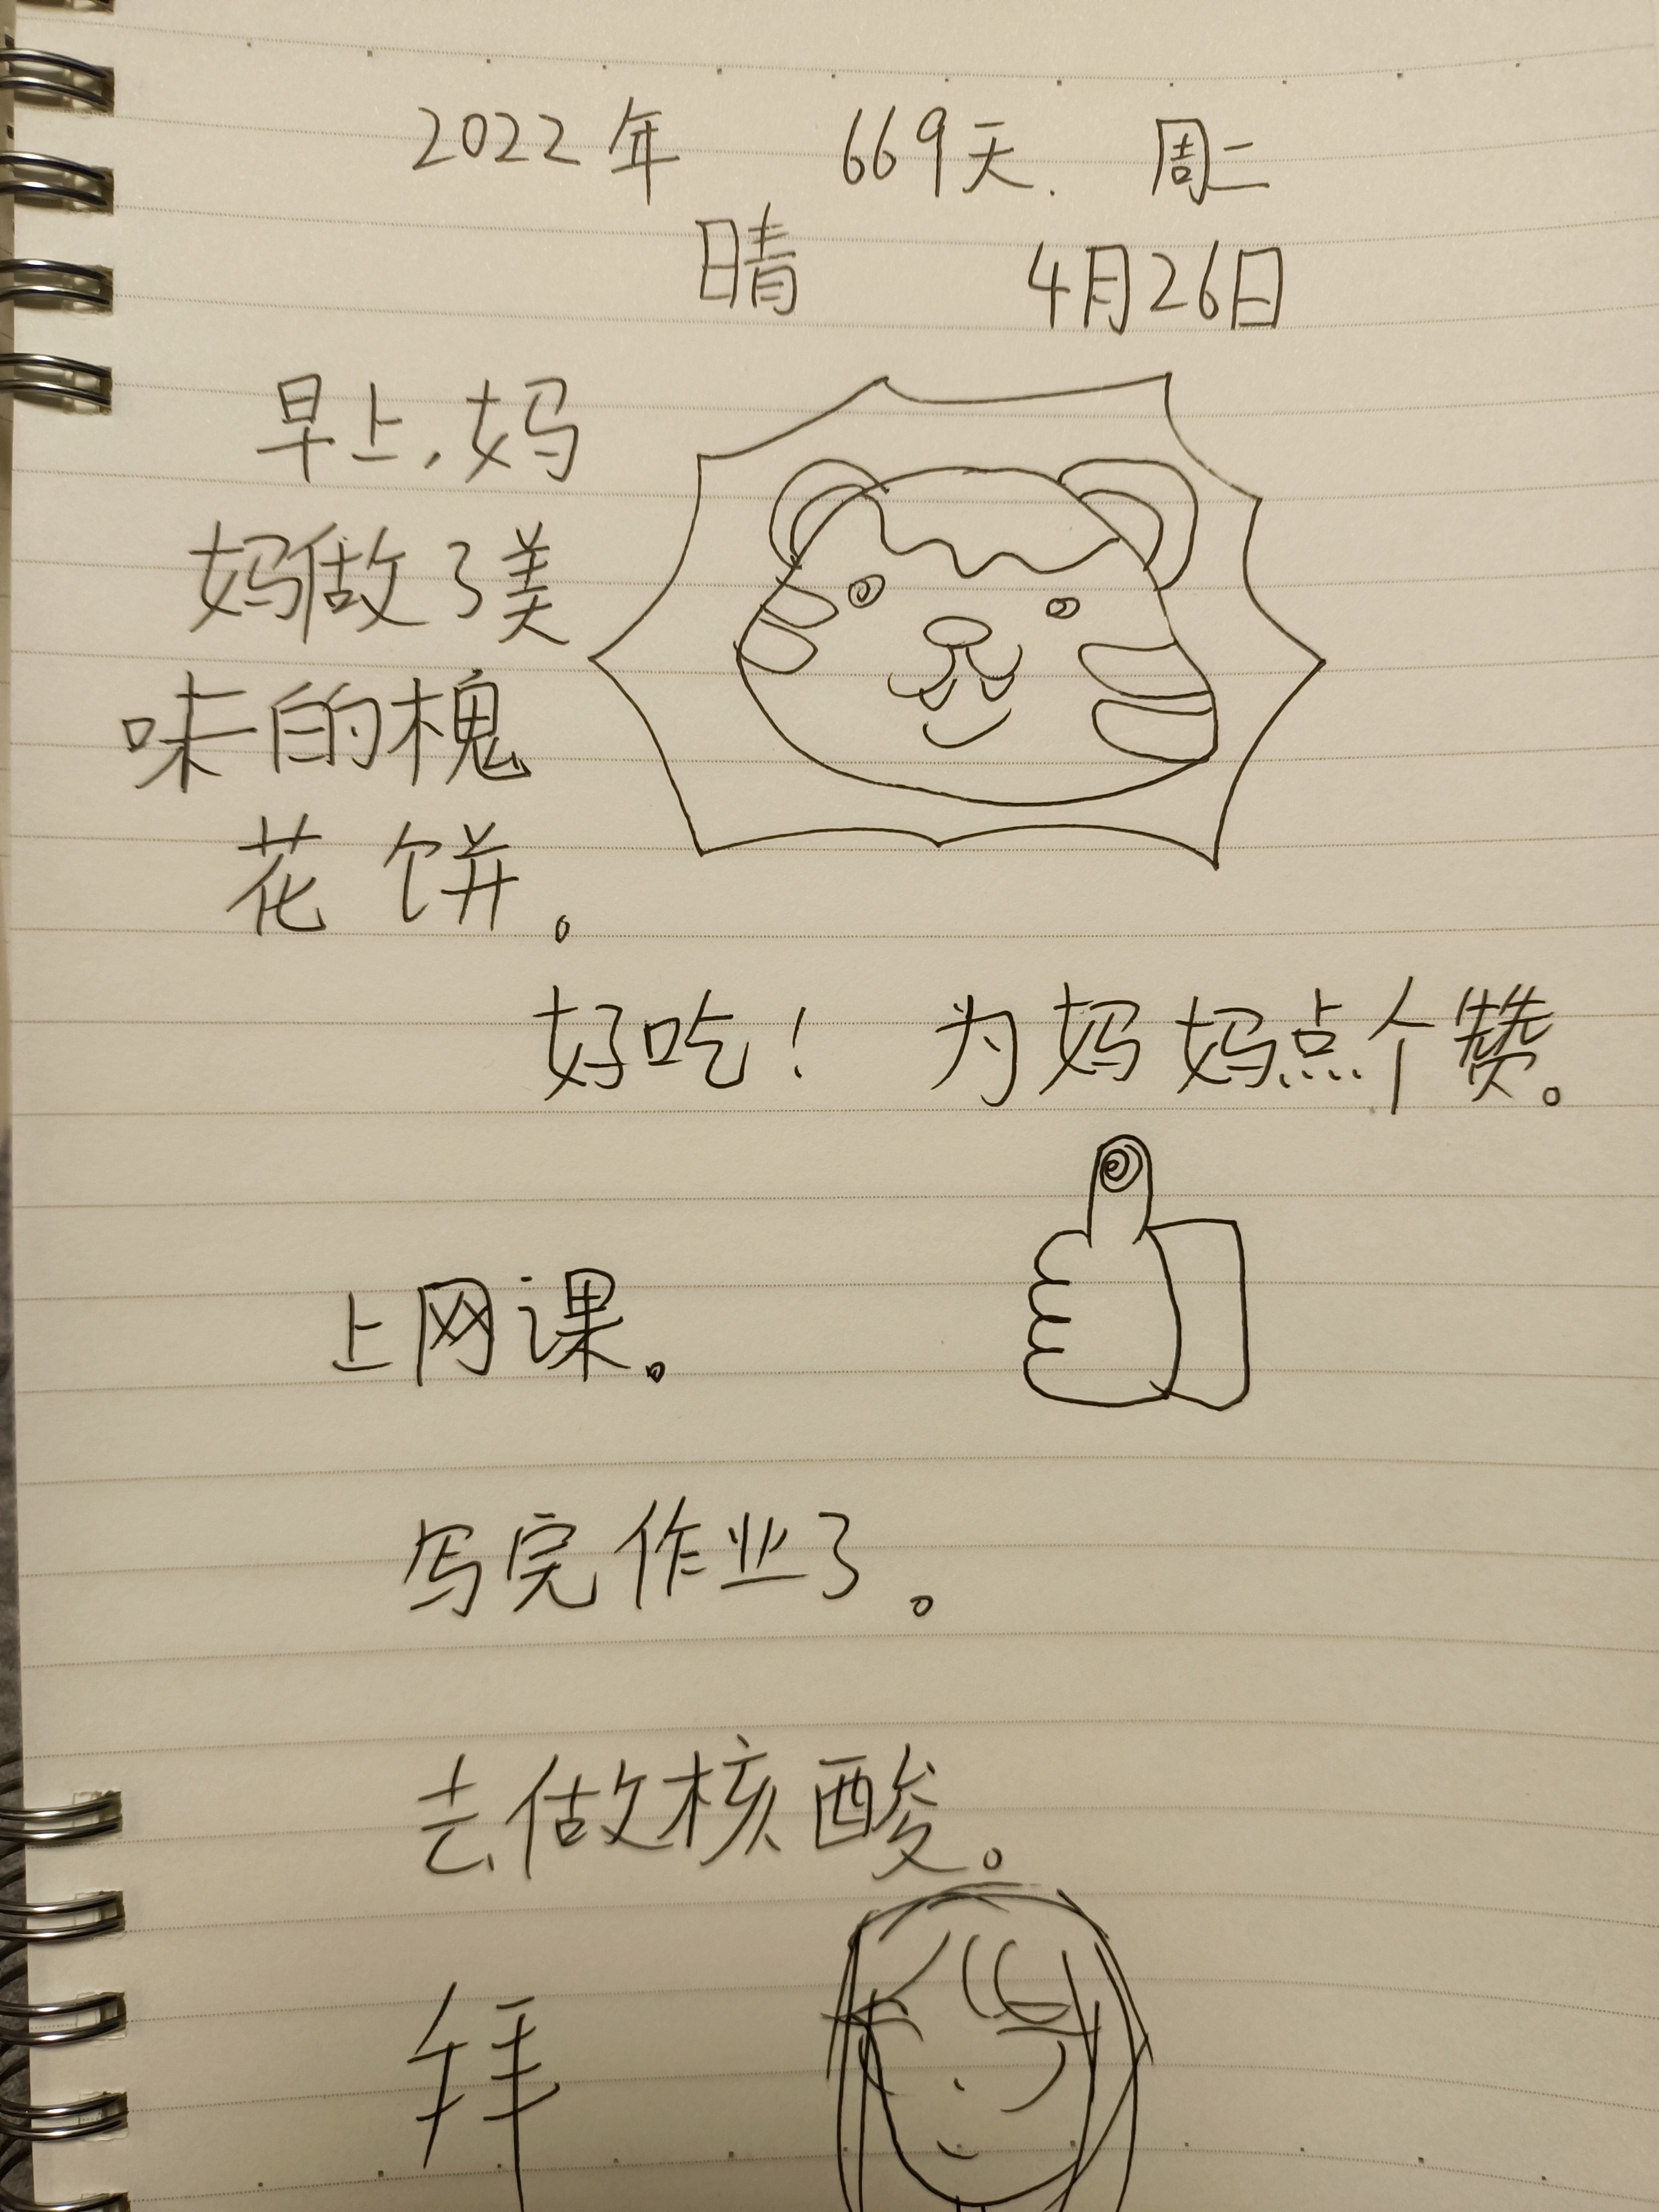 2022年 669天. 周二
晴 4月26日
早上,妈
妈做了美
味的槐
花饼。
好吃! 为妈妈点个赞。
上网课。
写完作业了。
去做核酸。
拜